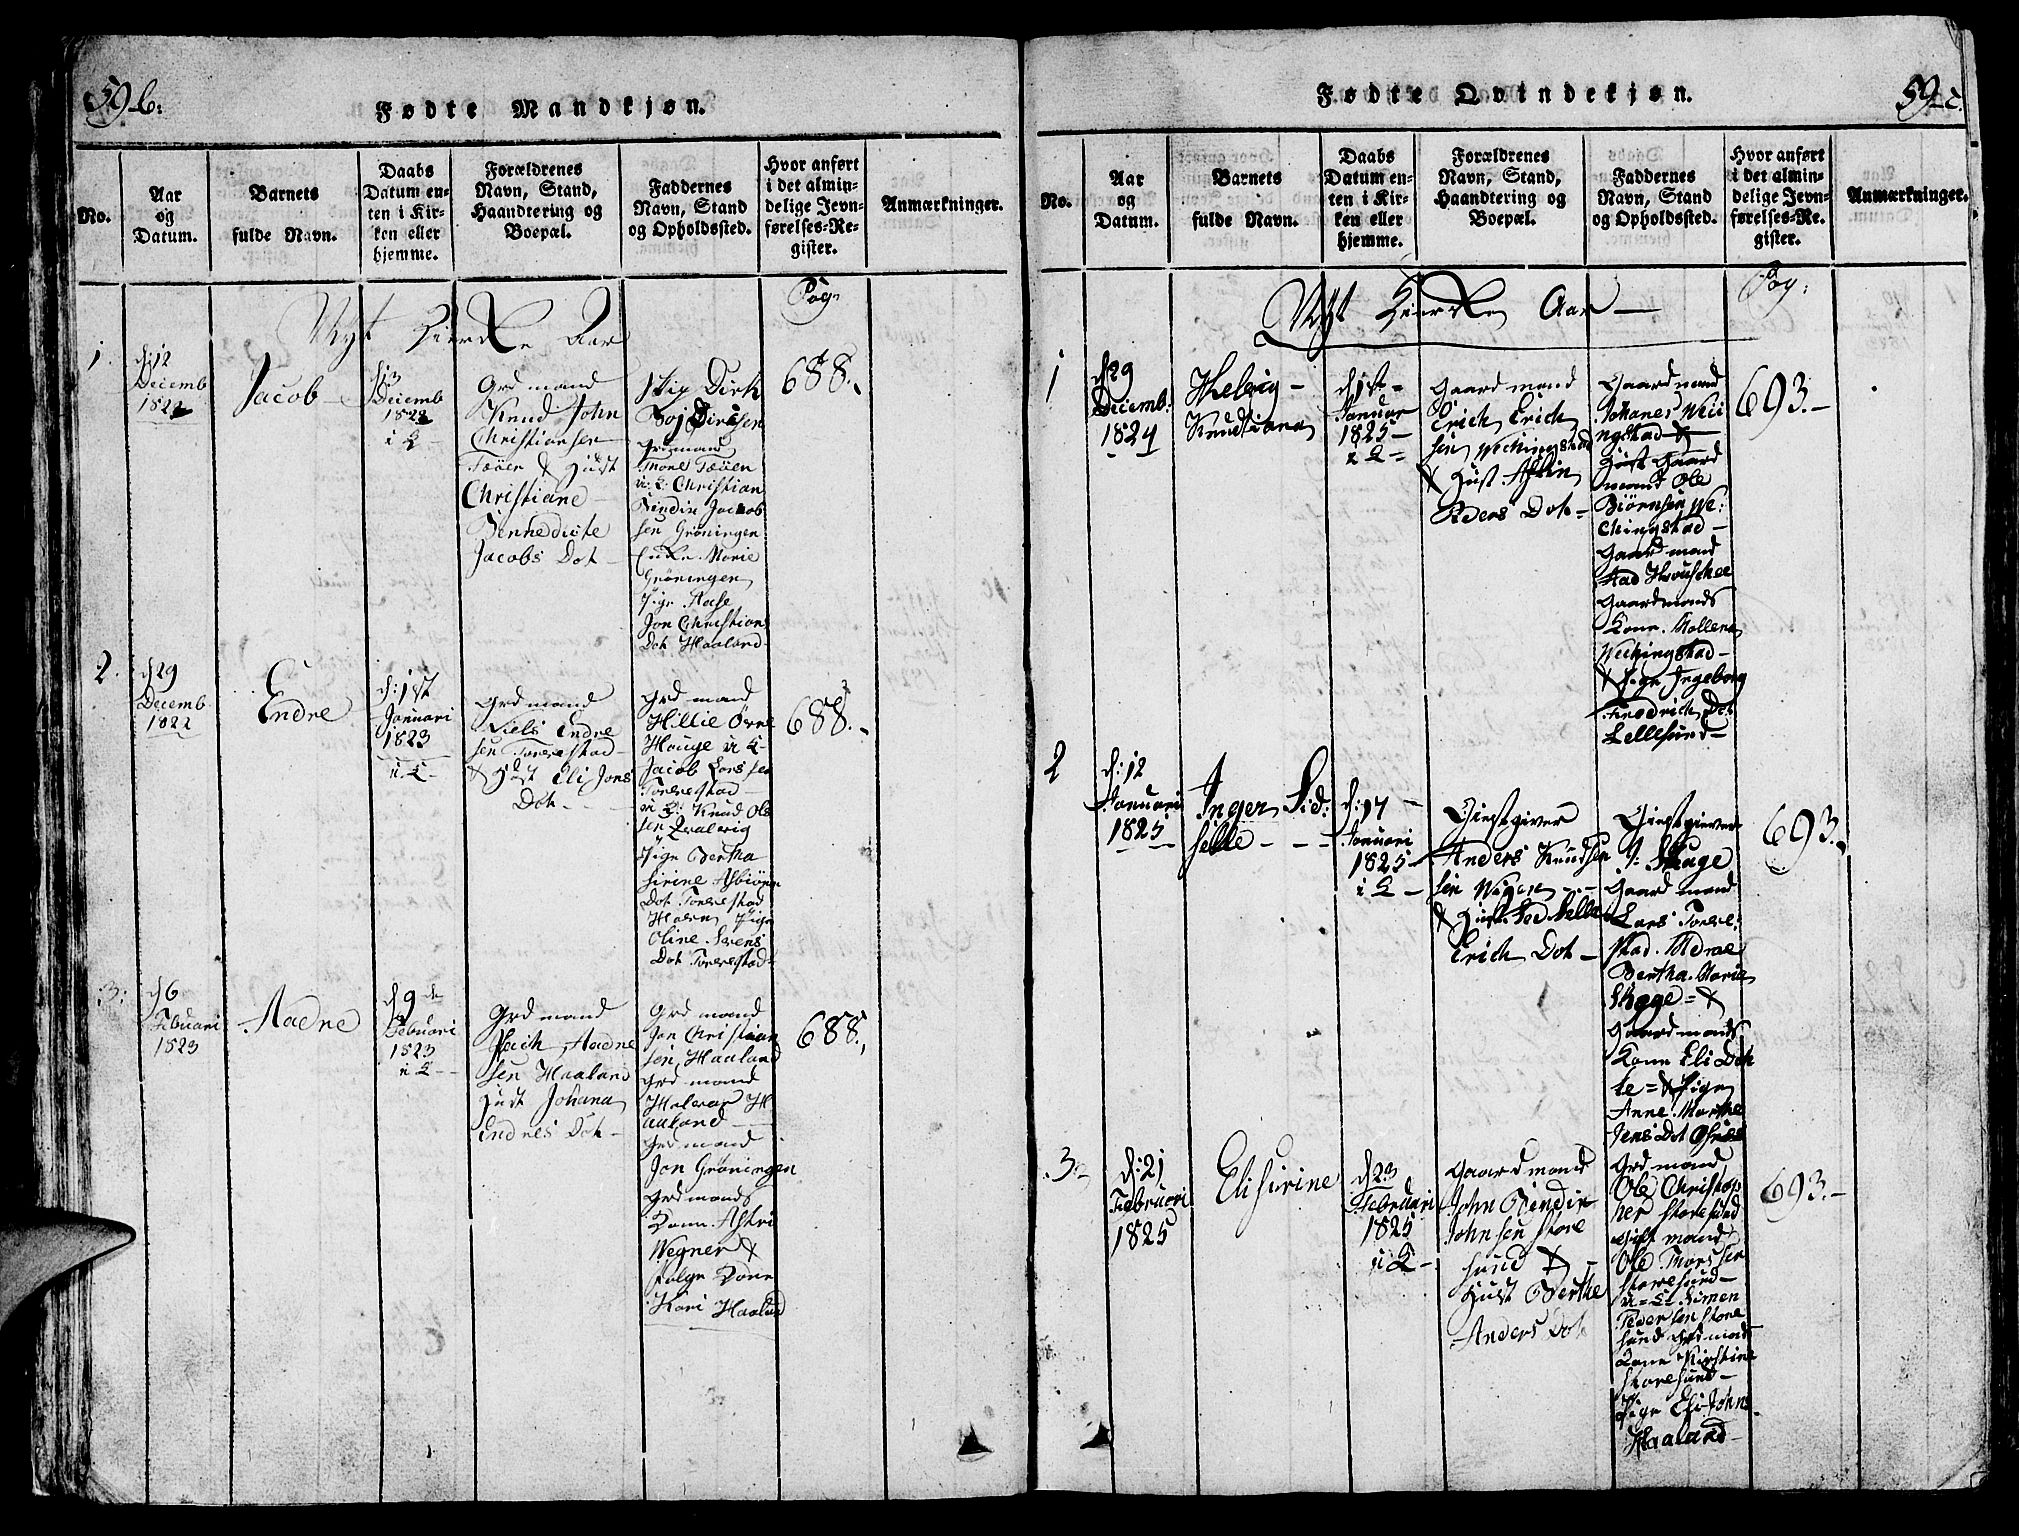 59 b:
Fødte Mandkjøn.
No.
Aar
og
Datum.
Barnets
fulde Navn.
Daabs
Datum en-
ten i Kir-
ken eller
hjemme.
Forældrenes
Navn, Stand,
Haandtering og
Boepæl.
Faddernes
Navn, Stand
og Opholdssted.
Hvor anført
i det almin-
delige Jevn-
førelses-Re-
gister.
Anmærkninger.
Nyt Kierke Aar
Pag:
1.
d: 12
Decemb
1822
Jacob
d 13
Decemb
1822
i K
Grd mand
Knud John
Christiansen
& Hust
Christiane
Bennedicte
Jacobs Dot
Dirk
Dirksen
u: K: Christian
Bendix Jacob
sen Grøningen
Marie
Grøningen
Pige Aase
Jon Christians
Dot Haaland
688.
2.
d 29
Decemb
1822
Endre
d: 1st
Januari
1823
i K
Grd mand
Niels Endre
sen Torrestad
& Hust Eli Jons
Dot
Grd mand
Hillie Øvre
Hauge u K
Jacob Lars sen
Torrestad
u K: Knud Ole
sen Qvalevig
Pige Bertha
Sirine Asbiørn
Dot Torrestad
Pige
Oline Svens
Dot Torrestad
688.
3.
d 6
Februari
1823
Aadne
d 9de
Februari
1823
i K
Grd mand
Erich Aadne
sen Haaland
Hust Johana
Endres Dot
Grd mand
Jon Christian
sen Haaland
Grd mand
Halvor H
aaland
Grd mand
Jon Grøningen
Grd mands
Kone Astri
Wegner &
Kone
Kari Haaland
688.
59 c.
Fødte Qvindekjøn.
No.
Aar
og
Datum.
Barnets
fulde Navn.
Daabs
Datum en-
ten i Kir-
ken eller
hjemme.
Forældrenes
Navn, Stand,
Haandtering og
Boepæl.
Faddernes
Navn, Stand
og Opholdssted.
Hvor anført
i det almin-
delige Jevn-
førelses-Re-
gister.
Anmærkninger.
Nyt Kierke Aar
Pag:
1
d 29
Decemb:
1824
Helvig
Knudtiana
d: 1st
Januar
1825
i K
Gaard mand
Erich Erich
sen Wechingstad
& Hust Astin
Peders Dot
Gaard mand
Johanes Weii
ngstad &
Hust Gaard
mand Ole
Biørnsen We:
chingstad
Gaard mand
Gaardmands
Kone Mallena
Wechingstad
& Pige Ingeborg
Fredrich Dot
Lellesund
693.
2
d: 12
Januari
1825
Inger Sid:
selle
d: 17
Januari
1825
i K
Giestgiver
Anders Knudsen
& Hust
Erich Dot
Giestgiever
J: Skage
Gaard mand
Lars Torre:
stad Madme
Bertha Marie
Skage = &
Gaard mands
Kone Eli Dot
te = & Pige
Anne Marthe
Jens Dot
693.
3.
d: 21
Februari
1825
Elisirine
d 23
Februari
1825
i K
Gaard mand
John Bendix
Johnsen Store
sund &
Hust Berthe
Anders Dot
Grd mand
Ole Christop
her Storesund
Gift mand
Ole Thorssen
Storesund
u = K Simen
Pedersen Store
sund Grd mands
Kone Kirstine
Storesund
Pige Eli Johns
Haaland
693.